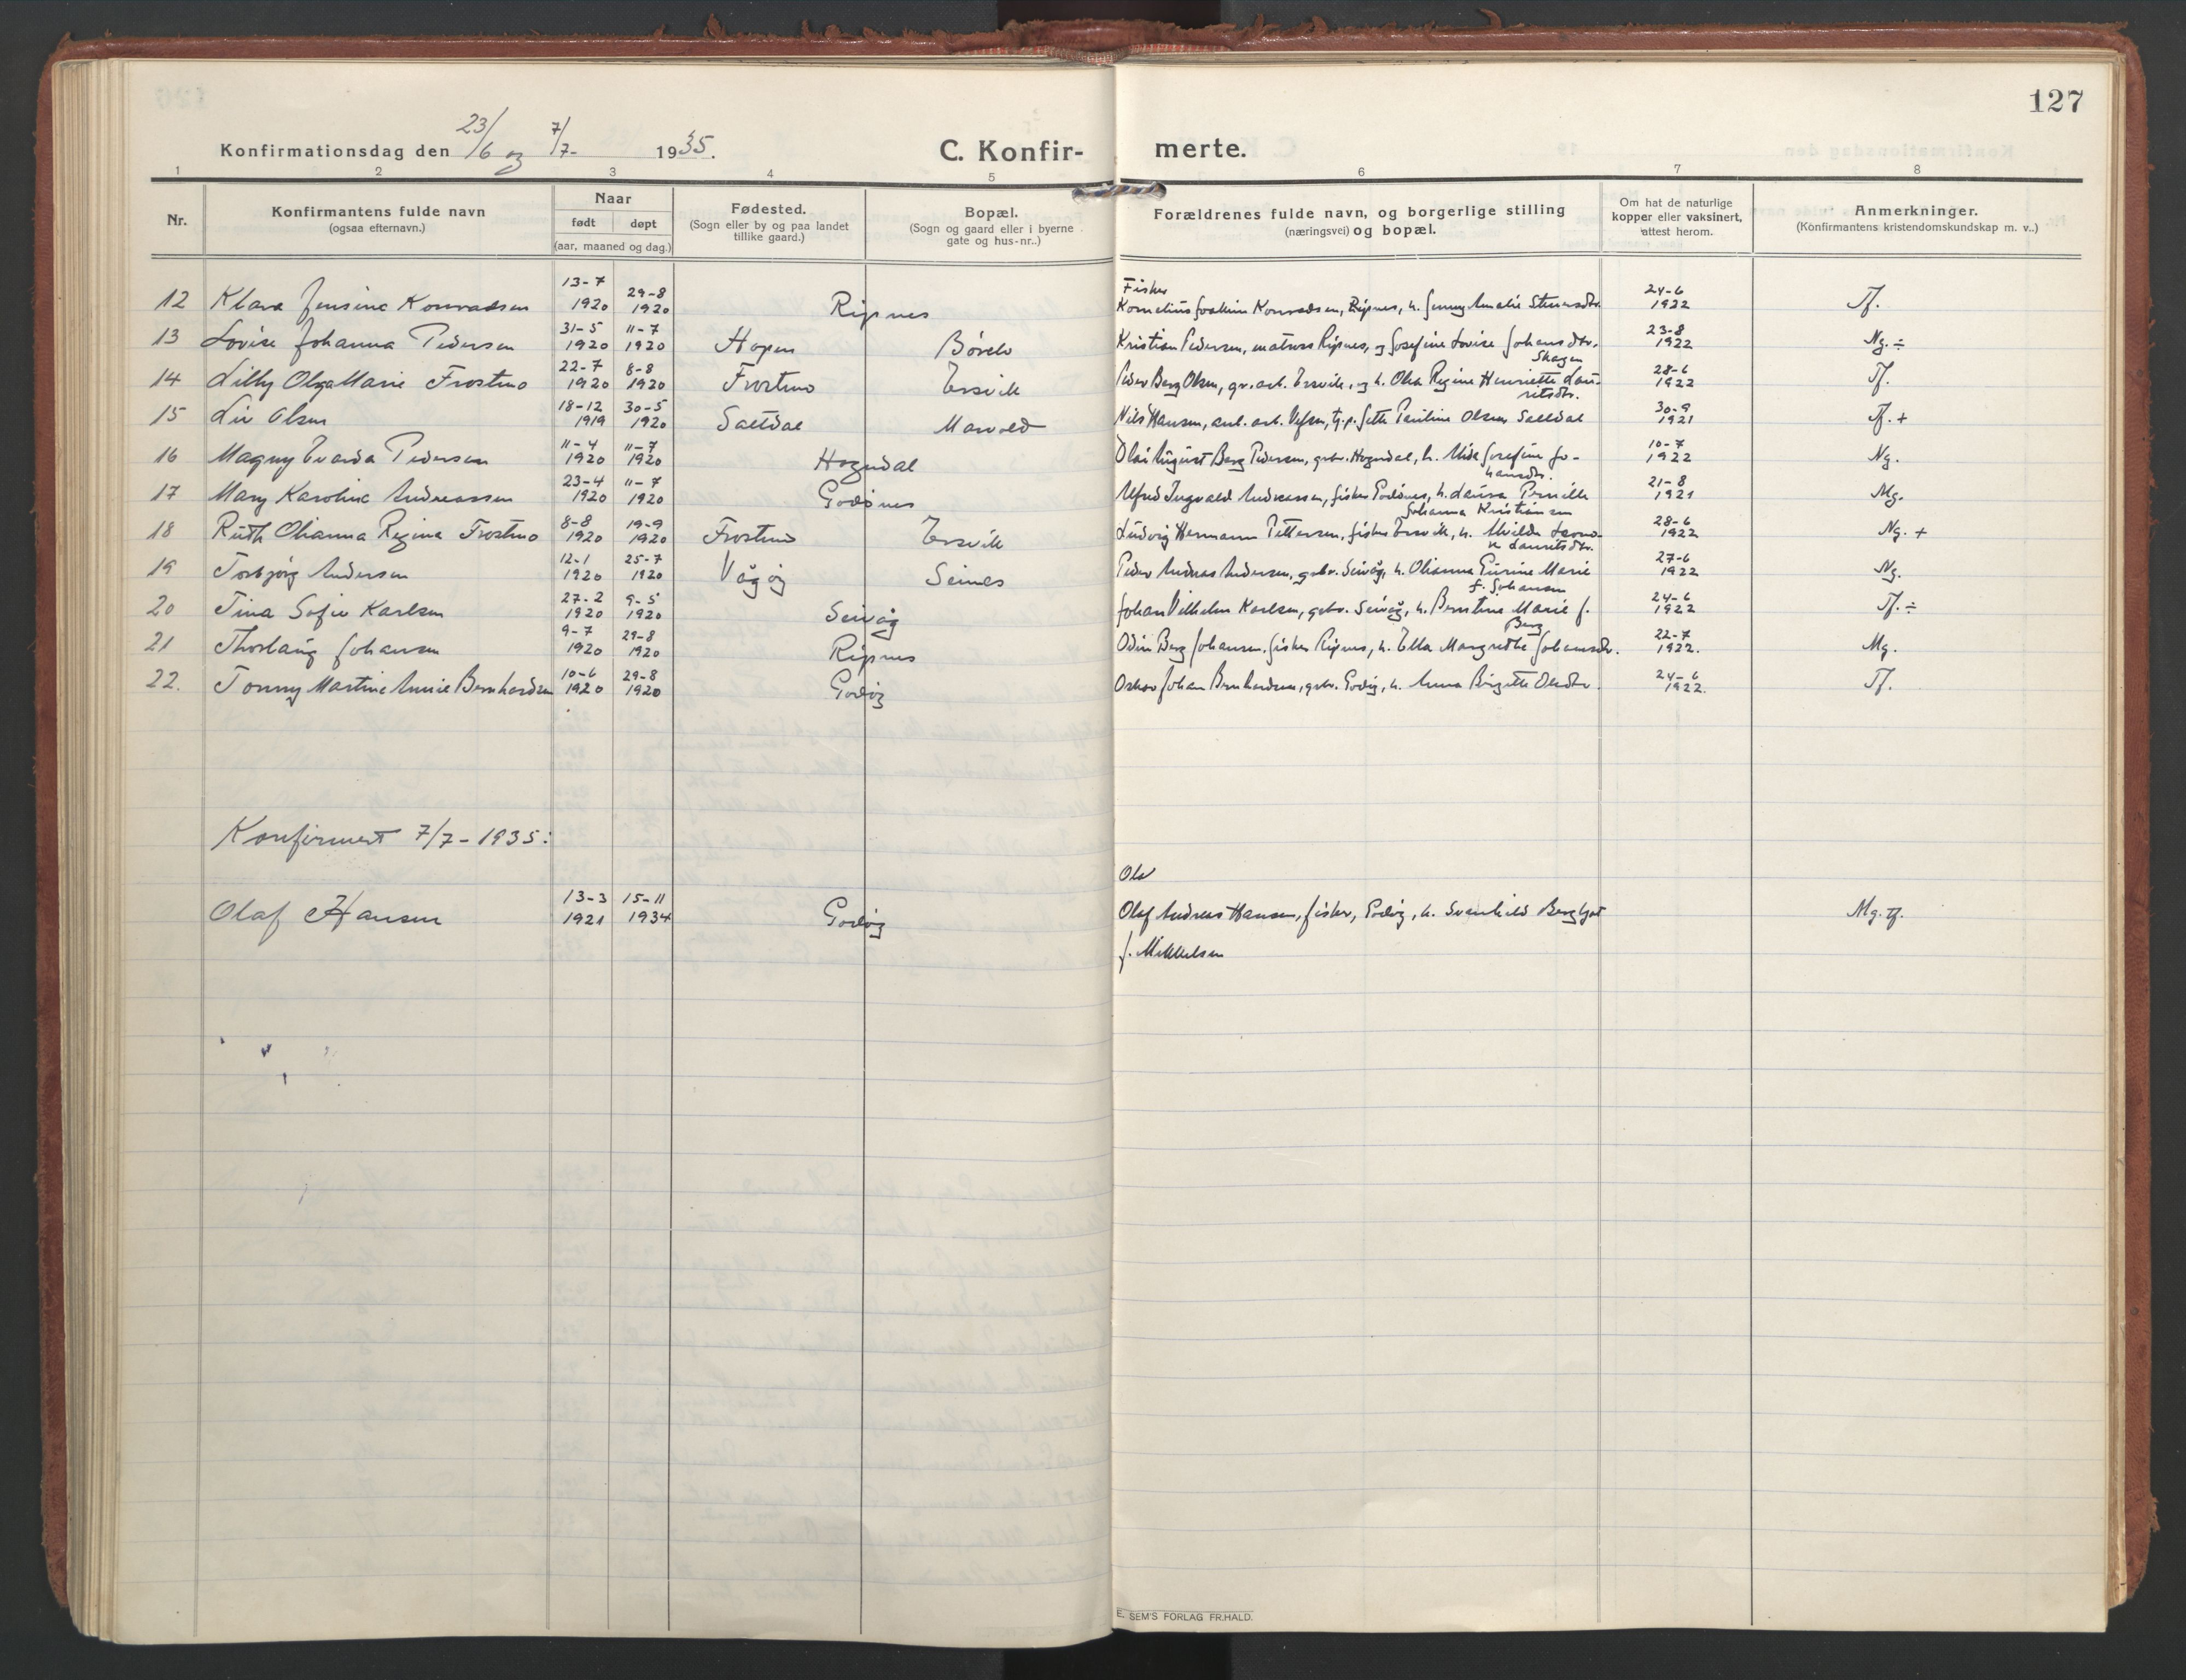 127
Konfirmationsdag den 23/6 og 7/7- 1935. C. Konfir- merte.
1 2 3 4 5 6 7 8
Nr. Konfirmantens fulde navn (ogsaa efternavn.) Naar født døpt (aar, maaned og dag.) Fødested. (Sogn eller by og paa landet tillike gaard.) Bopæl. (Sogn og gaard eller i byerne gate og hus-nr..) Forældrenes fulde navn, og borgerlige stilling (næringsvei) og bopæl. Om hat de naturlige kopper eller vaksinert, attest herom. Anmerkninger. (Konfirmantens kristendomskundskap m. v..)
12 Klara Jensine Konradsen 13-7 1920 29-8 1920 Ripnes Fisker Kornelius Joakim Konradsen, Ripnes, h. Jenny Amalie 24-6 1922 Tf.
13 Lovise Johanna Pedersen 31-5 1920 11-7 1920 Hopen Kristian Pedersen, matros Ripnes, og Josefine Lovise Johansdtr. 23-8 1922 Ng. ÷
14 Lilly Olga Marie Frostmo 22-7 1920 8-8 1920 Frostmo Ersvik Peder Berg Olsen, gr.arb. Ersvik, og h. Olea Regine Henriette Lauritsdtr. Skagen 28-6 1922 Tf.
15 Liv Olsen 18-12 1919 30-5 1920 Saltdal Nils Hansen, anl. arb. Vefsn, tj.p. Pauline Olsen Saltdal 30-9 1921 Tf. +
16 Magny Evarda Pedersen 11-4 1920 11-7 1920 Hogndal Olai August Berg Pedersen, gbr. Hogndal, h. Josefine Johansdtr. 10-7 1922 Ng.
17 Mary Karoline Andreassen 23-4 1920 11-7 1920 Godønes Alfred Ingvald Andreassen, fisker Godønes, h. Laura Pernille Johanna Kristiansen 21-8 1921 Mg.
18 Ruth Olianna Regine Frostmo 8-8 1920 19-9 1920 Frostmo Ersvik Ludvig Hermann Pettersen, fisker Ersvik, h. Lauritsdtr. 28-6 1922 Ng. +
19 Torbjørg Andersen 12-1 1920 25-7 1920 Vågøy Seines Peder Andreas Andersen, gbr. Seivåg, h. Olianna Gurine Marie f. Johansen 27-6 1922 Ng.
20 Tina Sofie Karlsen 27-2 1920 9-5 1920 Seivåg Johan Vilhelm Karlsen, gbr. Seivåg, h. Berntine Marie f. Berg 24-6 1922 Tf. ÷
21 Thorlaug Johansen 9-7 1920 29-8 1920 Ripnes Odin Berg Johansen, fisker Ripnes, h. Ella Margrethe Johansdtr. 22-7 1922. Mg.
22. Tonny Martine Annie Bernhardsen 10-6 1920 29-8 1920 Godøy Oskar Johan Bernhardsen, gbr. Godøy, h. Anna Birgitte Olsdtr. 24-6 1922. Tf.
Konfirmert 7/7-1935:
Olaf Hansen 13-3 1921 15-11 1934 Godøy Olaf Andreas Hansen, fisker, Godøy, h. Svanhild Bergljot Mg. tf.
f. Mikkelsen
E. SEM'S FORLAG FR.HALD.